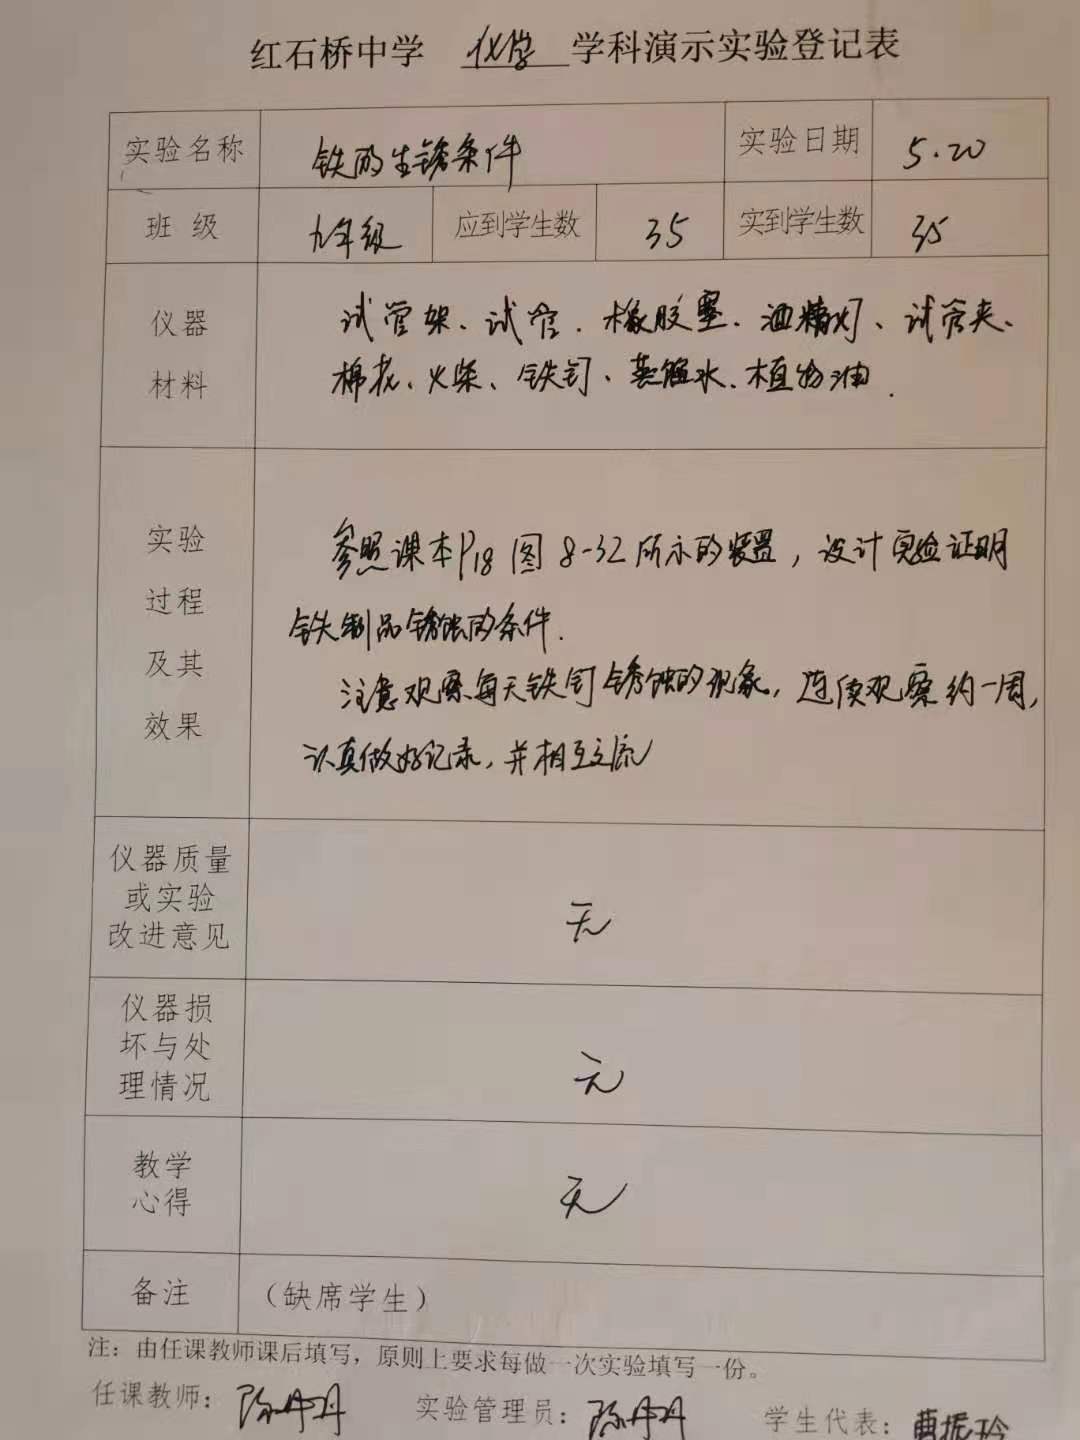 红石桥中学 化学 学科演示实验登记表
实验名称 铁的生锈条件 实验日期 5.20
班 级 九年级 应到学生数 35 实到学生数 35
仪器
材料
试管架、试管、橡胶塞、酒精灯、试管夹、
棉花、火柴、铁钉、蒸馏水、植物油.
实验
过程
及其
效果
参照课本P18图8-32所示的装置,设计实验证明
铁制品锈蚀的条件.
注意观察每天铁钉锈蚀的现象,连续观察约一周,
认真做好记录,并相互交流
仪器质量
或实验
改进意见
无
仪器损
坏与处
理情况
无
教学
心得
无
备注 (缺席学生)
注：由任课教师课后填写，原则上要求每做一次实验填写一份。
任课教师：陈丹丹 实验管理员：陈丹丹 学生代表：曹振玲